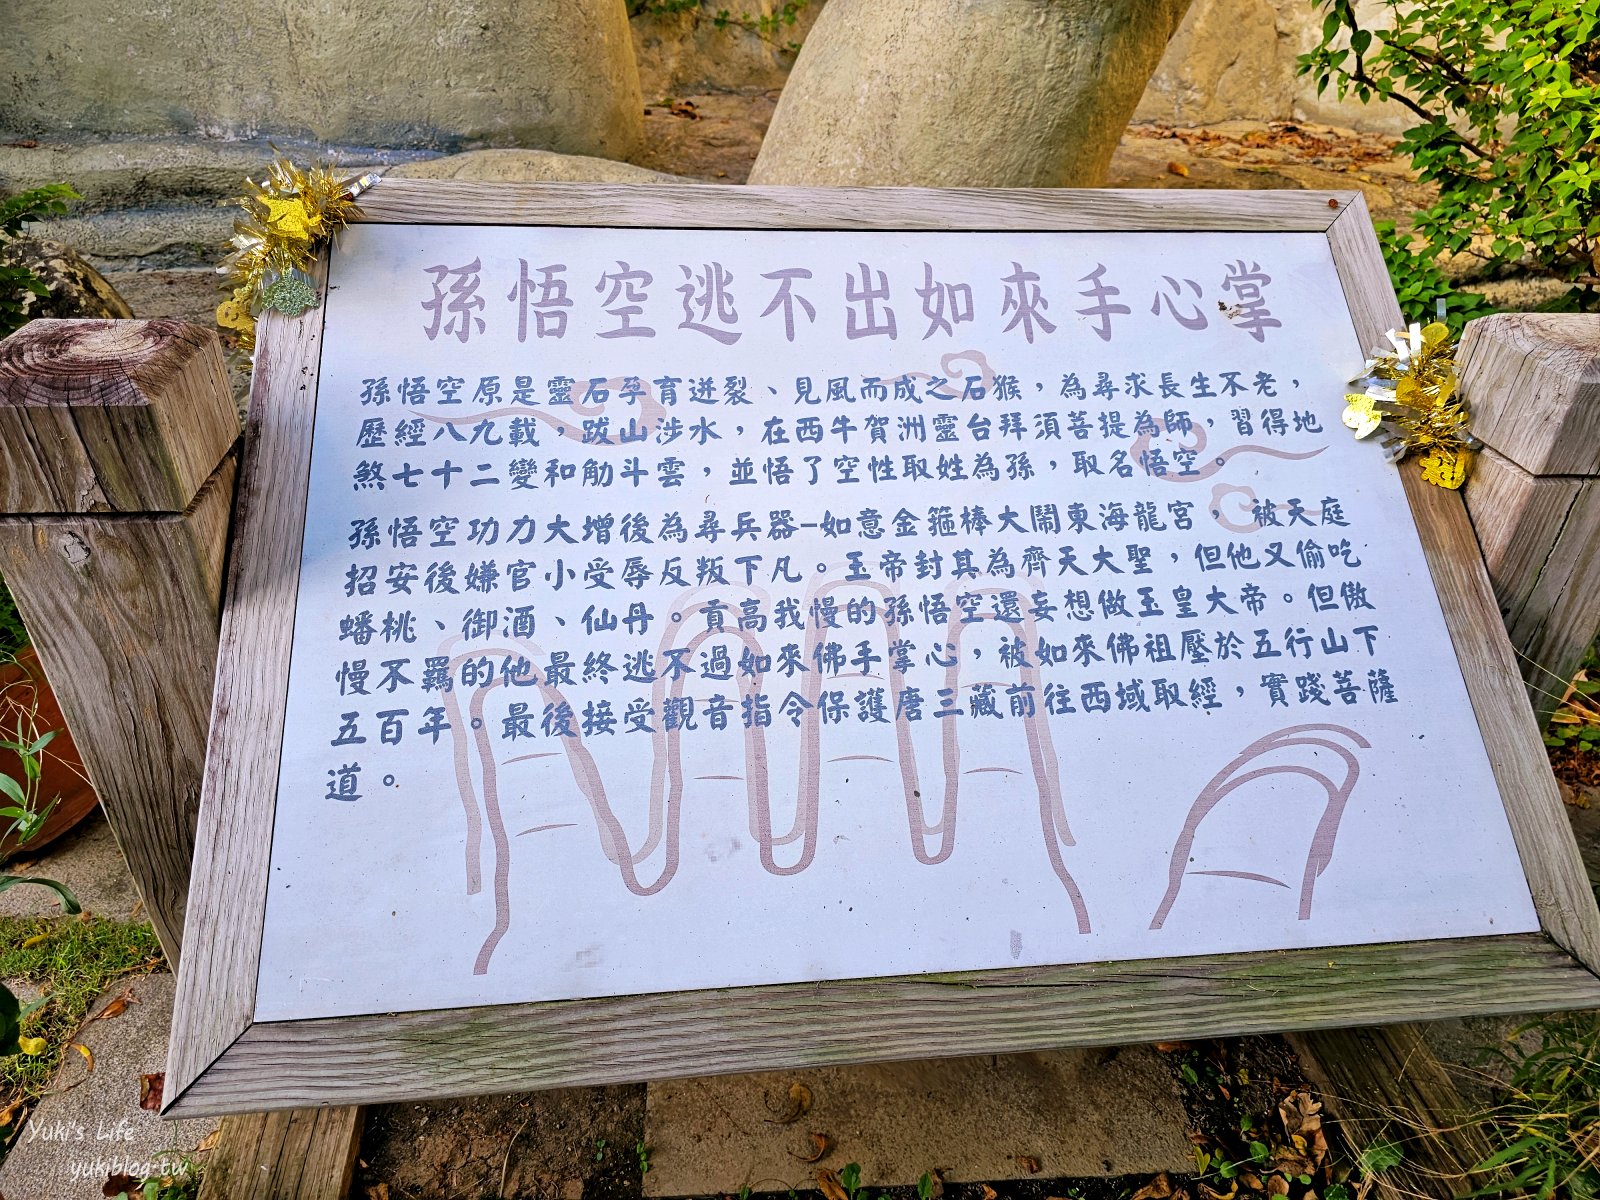 孫悟空逃不出如來手心掌
孫悟空原是靈石孕育迸裂、見風而成之石猴，為尋求長生不老，
歷經八九載，跋山涉水，在西牛賀洲靈台拜須菩提為師，習得地
煞七十二變和觔斗雲，並悟了空性取姓為孫，取名悟空。
孫悟空功力大增後為尋兵器–如意金箍棒大鬧東海龍宮， 被天庭
招安後嫌官小受辱反叛下凡。玉帝封其為齊天大聖，但他又偷吃
蟠桃、御酒、仙丹。貢高我慢的孫悟空還妄想做玉皇大帝。但傲
慢不羈的他最終逃不過如來佛手掌心，被如來佛祖壓於五行山下
五百年。最後接受觀音指令保護唐三藏前往西域取經，實踐菩薩
道。
Yuki's Life
yukiblog.tw